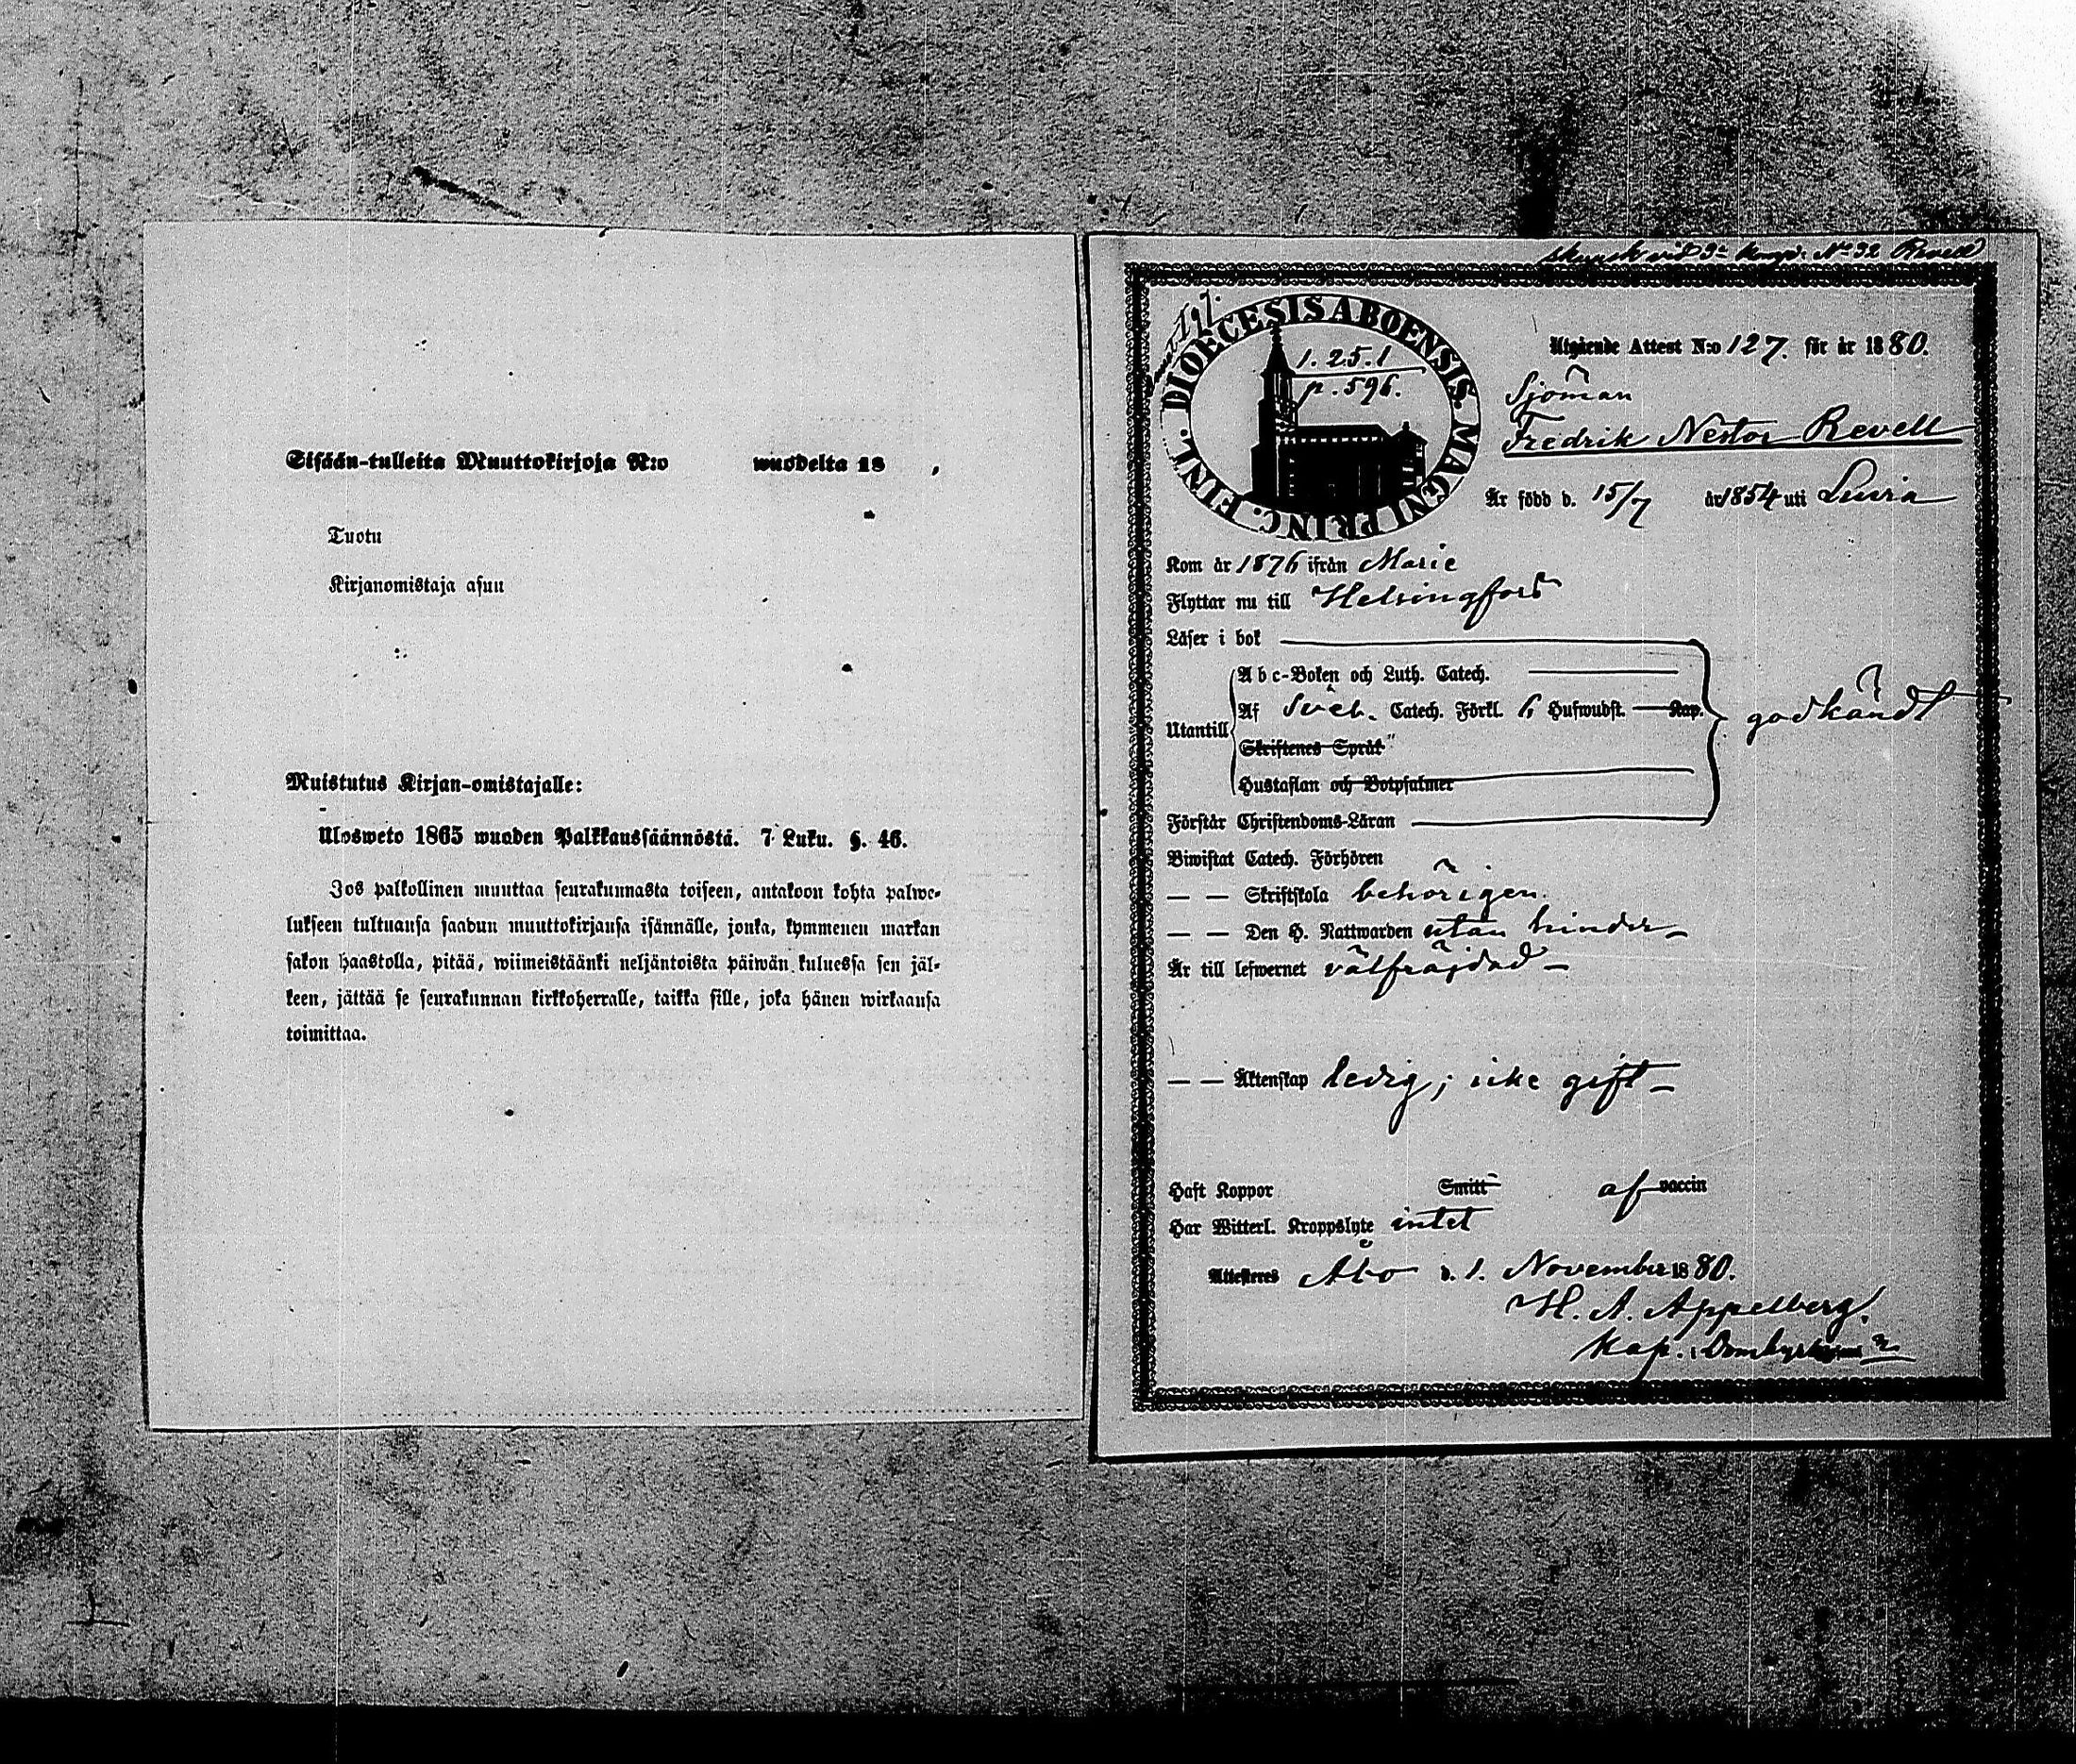 Sisään-tulleita Muuttokirjoja N:o wuodelta 18 ,
Tuotu
Kirjanomistaja asuu
Muistutus Kirjan-omistajalle:
Ulosweto 1865 wuoden Palkkaussäännöstä. 7 Luku. §. 46.
Jos palkollinen muuttaa seurakunnasta toiseen, antakoon kohta palwe-
lukseen tultuansa saadun muuttokirjansa isännälle, jonka, kymmenen markan
sakon haastolla, pitää, wiimeistäänki neljäntoista päiwän kuluessa sen jäl-
keen, jättää se seurakunnan kirkkoherralle, taikka sille, joka hänen wirkaansa
toimittaa.
N:o 32 Revell
DIOECESIS ABOENSIS. MAGNI PRINC. FINL.
1. 25. 1
p. 596.
Utgående Attest N:o 127. för år 1880.
Sjöman
Fredrik Nestor Revell
Är född d. 15/7 år 1854 uti Luvia
Kom år 1876 ifrån Marie
Flyttar nu till Helsingfors
Läser i bok
Utantill
Abc-Boken och Luth. Catech.
Af Sveb. Catech. Förkl. 6 Hufwudst. Kap.
Skriftenes Språk
Hustaflan och Botpsalmer
godkändt
Förstår Christendoms-Läran
Biwistat Catech. Förhören
— — Skriftskola behörigen.
— — Den H. Nattwarden utan hinder
Är till lefwernet välfräjdad
— — Äktenskap ledig; icke gift
Haft Koppor Smitt af vaccin
Har Witterl. Kroppslyte intet
Attesteras Åbo d. 1. November 1880.
H. A. Appelberg.
Kap.